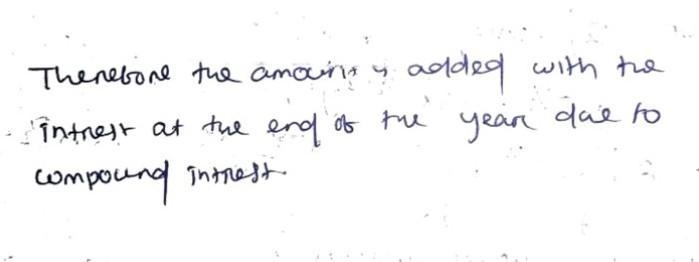 Therefore the amount is added with the
intrest at the end of the year due to
compound intrest